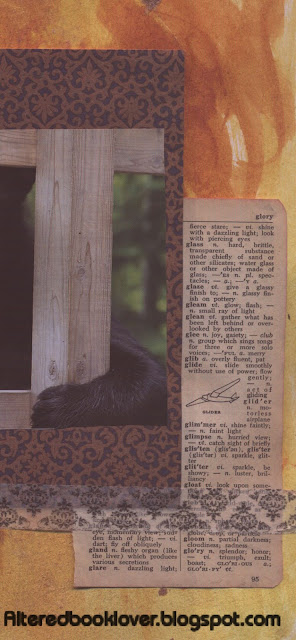 glory
fierce stare; — vt. shine
with a dazzling light; look
with piercing eyes
glass n. hard, brittle,
transparent substance
made chiefly of sand or
other silicates; water glass
or other object made of
glass; —'es n. pl. spec-
tacles; — a.; —'y a.
glaze vt. give a glassy
finish to; — n. glassy fin-
ish on pottery
gleam vi. glow; flash; —
n. small ray of light
glean vt. gather what has
been left behind or over-
looked by others
glee n. joy, gaiety; — club
n. group which sings songs
for three or more solo
voices; —'FUL a. merry
glib a. overly fluent, pat
glide vi. slide smoothly
without use of power; flow
gently; —
n. act of
gliding
glid'er
n. mo-
torless
airplane
GLIDER
glim'mer vi. shine faintly;
— n. faint light
glimpse n. hurried view;
— vt. catch sight of briefly
glis'ten (glis'sn), glis'ter
(glis'ter) vi. sparkle, glit-
ter
glit'ter vi. sparkle, be
showy; — n. luster, bril-
liancy
gloat vi. look upon some-
momentary view, sud-
den flash of light; — vi.
dart; fly off obliquely
gland n. fleshy organ (like
the liver) which produces
various secretions
glare n. dazzling light;
gloom n. partial darkness;
cloudiness, sadness
glo'ry n. splendor; honor;
— vi. triumph, exult;
boast; GLO'RI-OUS a.;
GLO'RI-FY vt.
95
Alteredbooklover.blogspot.com